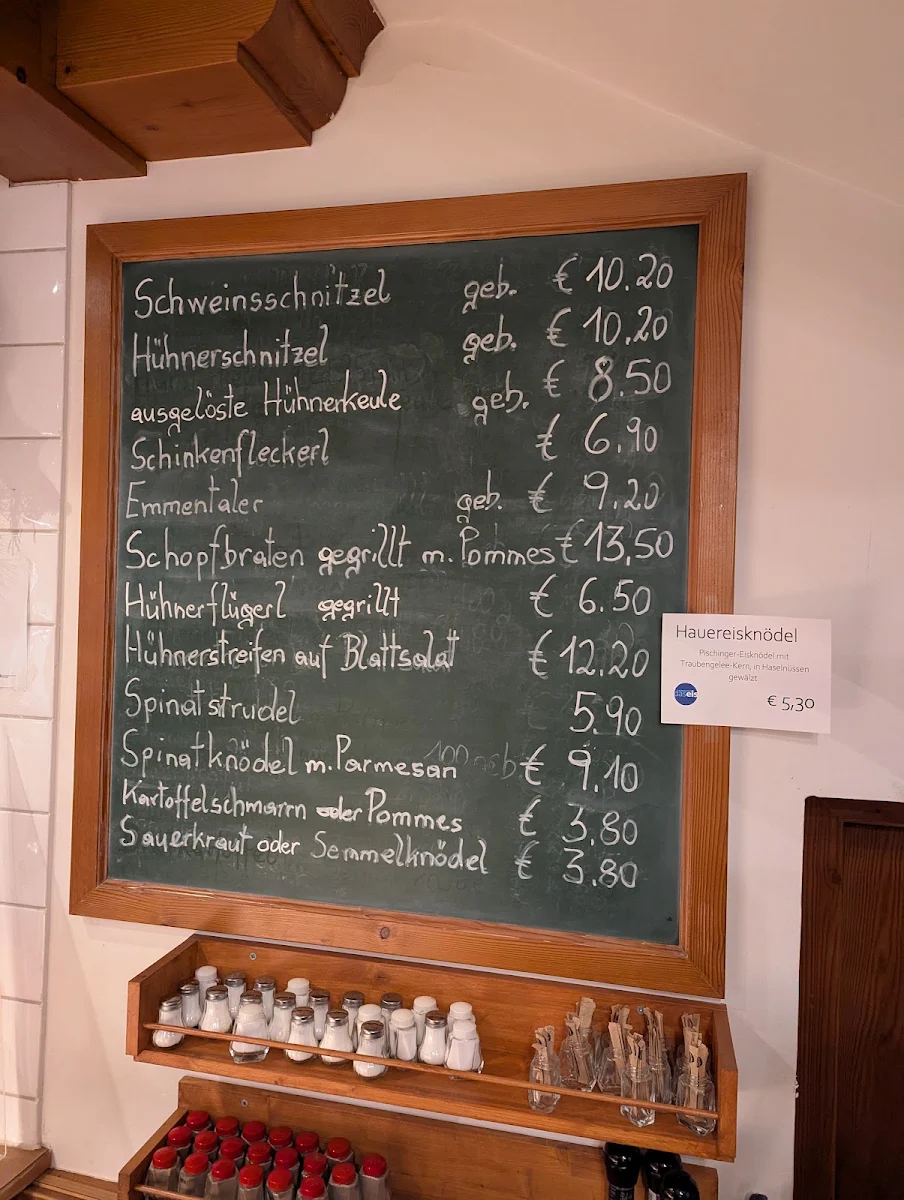 Schweinsschnitzel geb. € 10.20
Hühnerschnitzel geb. € 10.20
ausgelöste Hühnerkeule geb. € 8.50
Schinkenfleckerl € 6.90
Emmentaler geb. € 9.20
Schopfbraten gegrillt m. Pommes € 13,50
Hühnerflügerl gegrillt € 6.50
Hühnerstreifen auf Blattsalat € 12.20
Spinatstrudel 5.90
Spinatknödel m. Parmesan € 9.10
Kartoffelschmarrn oder Pommes € 3.80
Sauerkraut oder Semmelknödel € 3.80
Hauereisknödel
Pischinger-Eisknödel mit
Traubengelee-Kern, in Haselnüssen
gewälzt
daseis
€ 5,30